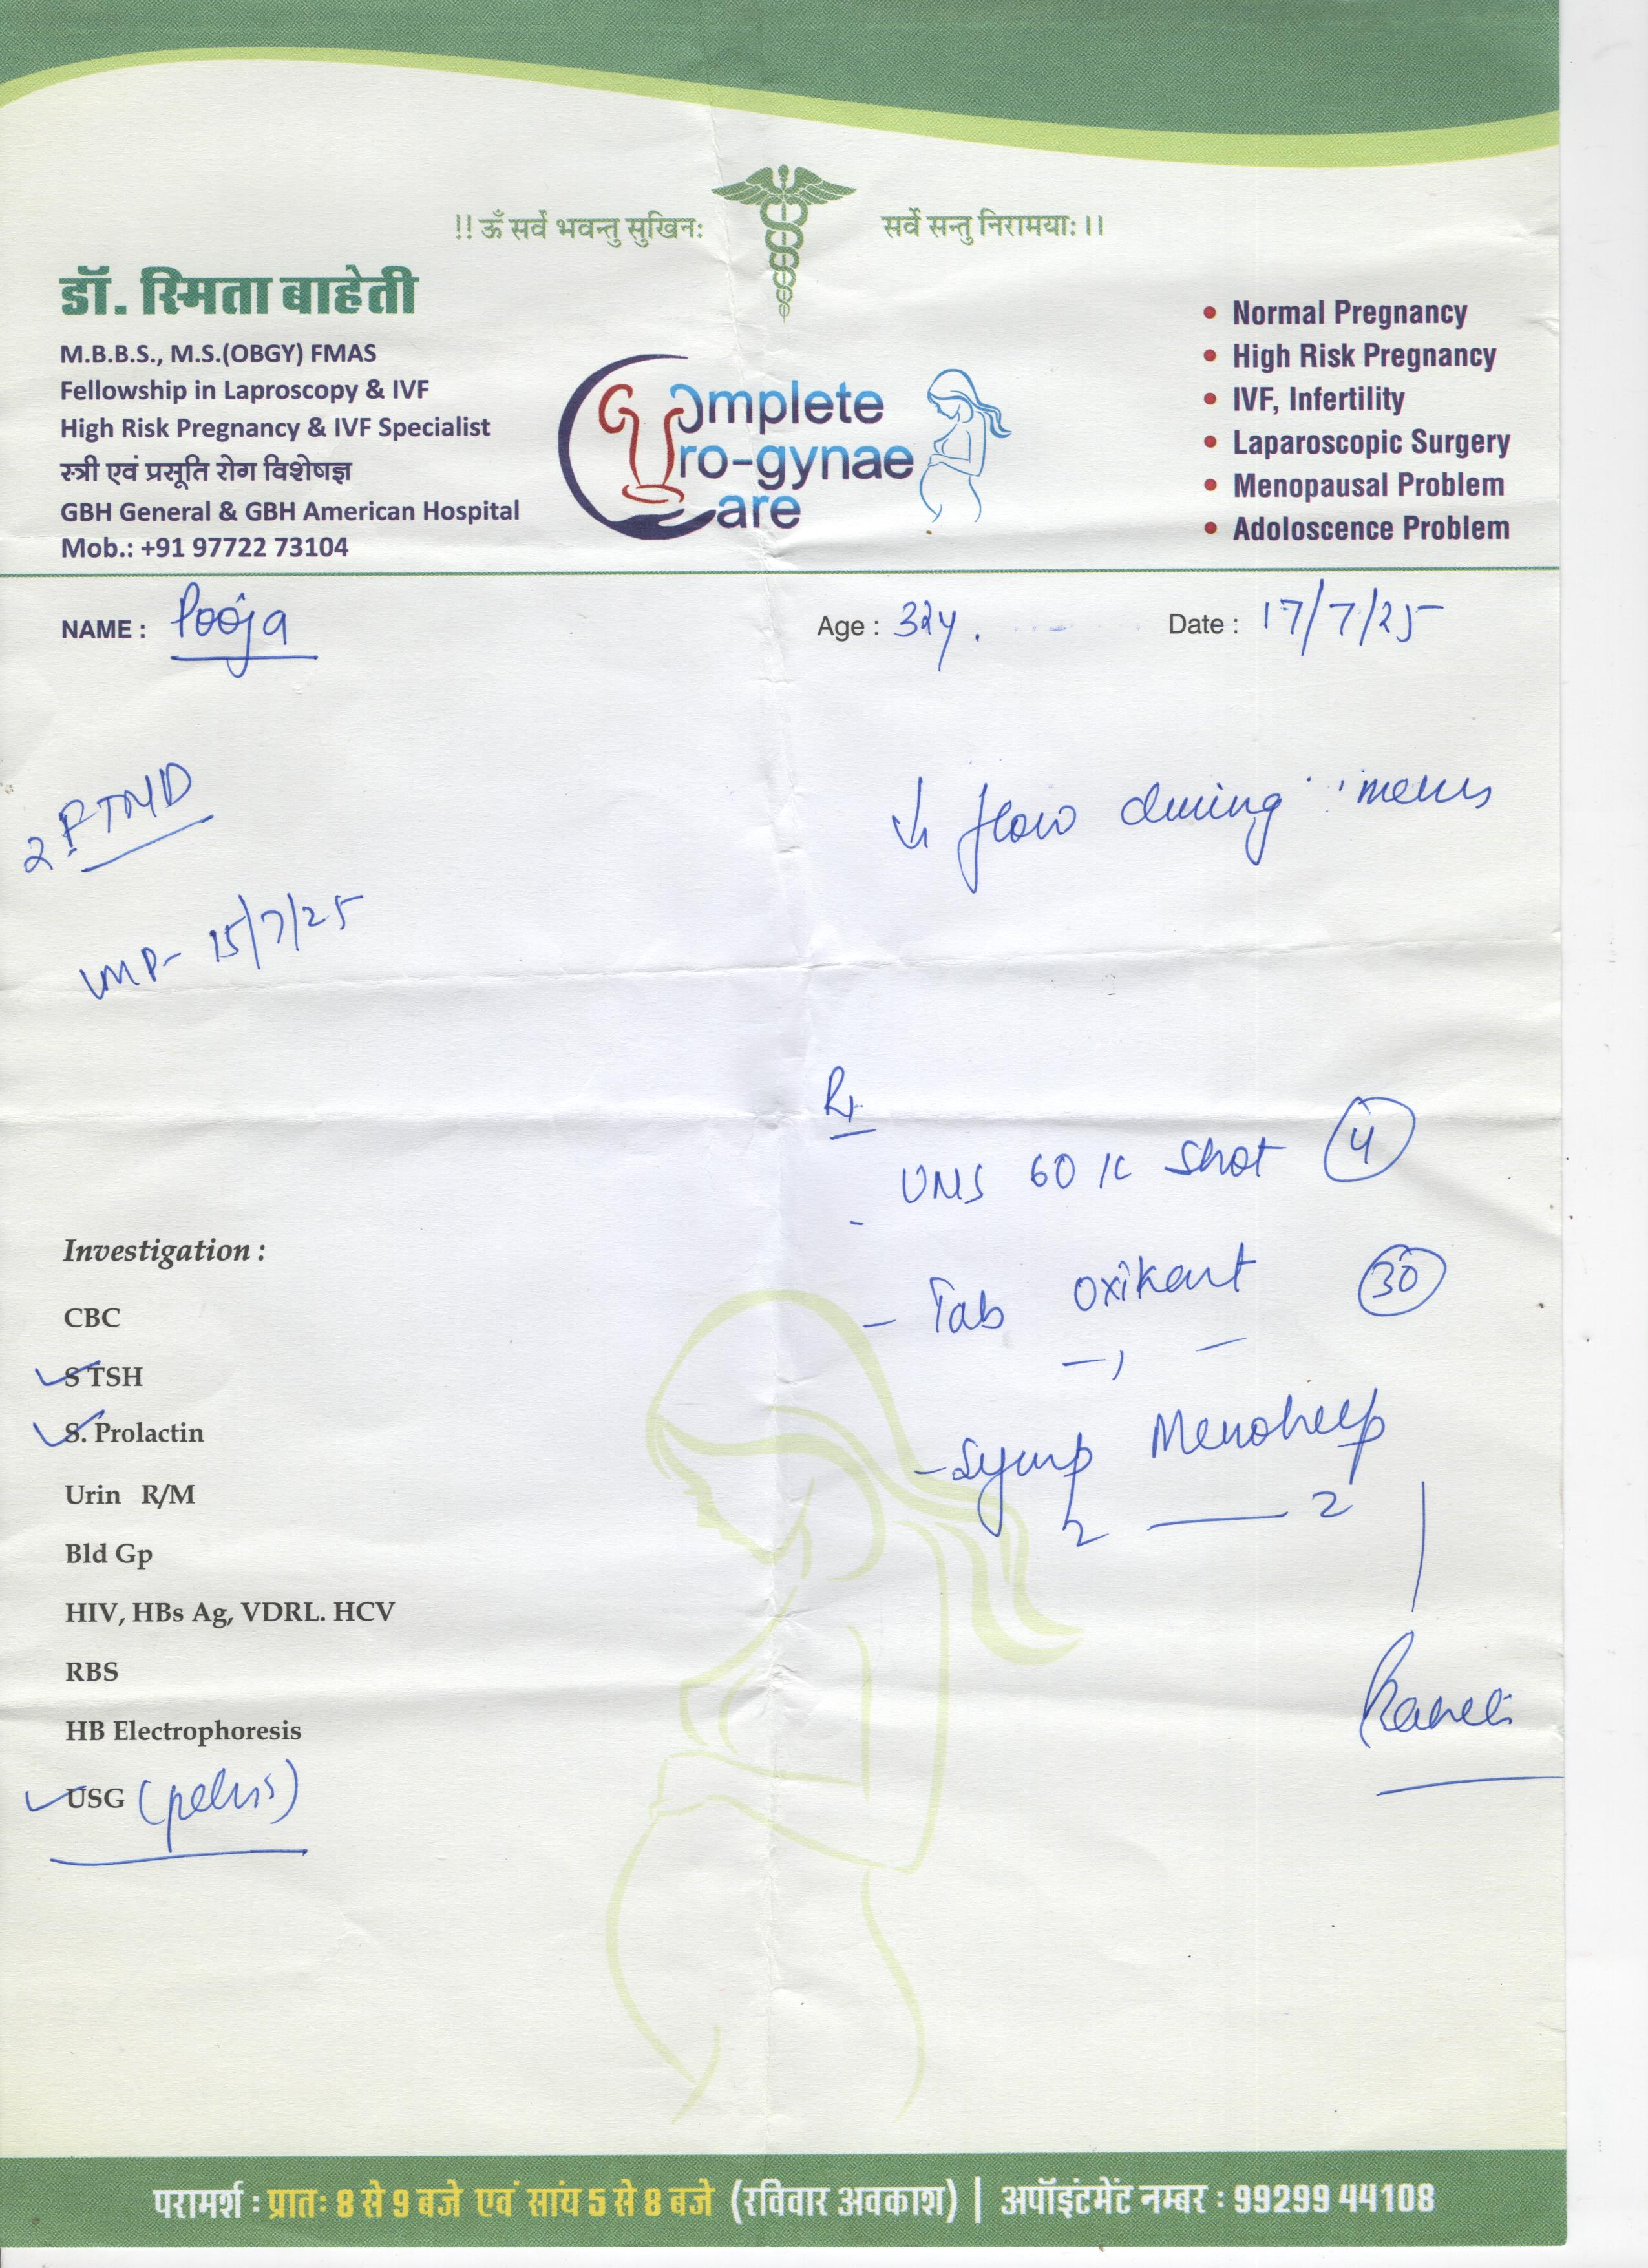 !! ॐ सर्वे भवन्तु सुखिनः सर्वे सन्तु निरामयाः ।।
डॉ. स्मिता बाहेती
M.B.B.S., M.S.(OBGY) FMAS
Fellowship in Laproscopy & IVF
High Risk Pregnancy & IVF Specialist
स्त्री एवं प्रसूति रोग विशेषज्ञ
GBH General & GBH American Hospital
Mob.: +91 97722 73104
Complete
Uro-gynae
Care
• Normal Pregnancy
• High Risk Pregnancy
• IVF, Infertility
• Laparoscopic Surgery
• Menopausal Problem
• Adoloscence Problem
NAME : Pooja Age : 32y. Date : 17/7/25
2 FTND
↓ flow during menses
LMP- 15/7/25
Rx
60 K Shot 4
- Tab 30
- Syrup Menohelp
2 — 2
Investigation :
CBC
S TSH
S. Prolactin
Urin R/M
Bld Gp
HIV, HBs Ag, VDRL. HCV
RBS
HB Electrophoresis
USG (pelvis)
परामर्श : प्रातः 8 से 9 बजे एवं सांय 5 से 8 बजे (रविवार अवकाश) | अपॉइंटमेंट नम्बर : 99299 44108